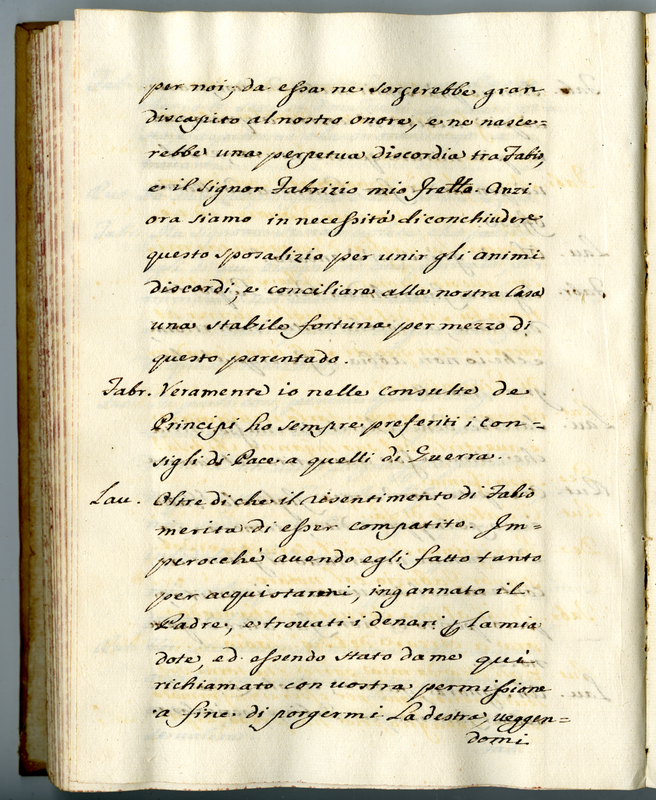 per noi; da essa ne sorgerebbe gran
discapito al nostro onore, e ne nasce=
rebbe una perpetua discordia tra Fabio,
e il Signor Fabrizio mio Frełło. Anzi
ora siamo in necessità di conchiudere
questo sposalizio per unir gli animi
discordi, e conciliare alla nostra Casa
una stabile fortuna per mezzo di
questo parentado.
Fabr. Veramente io nelle consulte de
Principi ho sempre preferiti i con=
sigli di Pace a quelli di Guerra.
Lau. Oltre di che il risentimento di Fabio
merita di esser compatito. Im=
perocchè avendo egli fatto tanto
per acquistarmi, ingannato il
Padre, e trovati i denari p la mia
dote, ed essendo stato da me quì
richiamato con vostra permissione
a fine di porgermi la destra, veggen=
domi